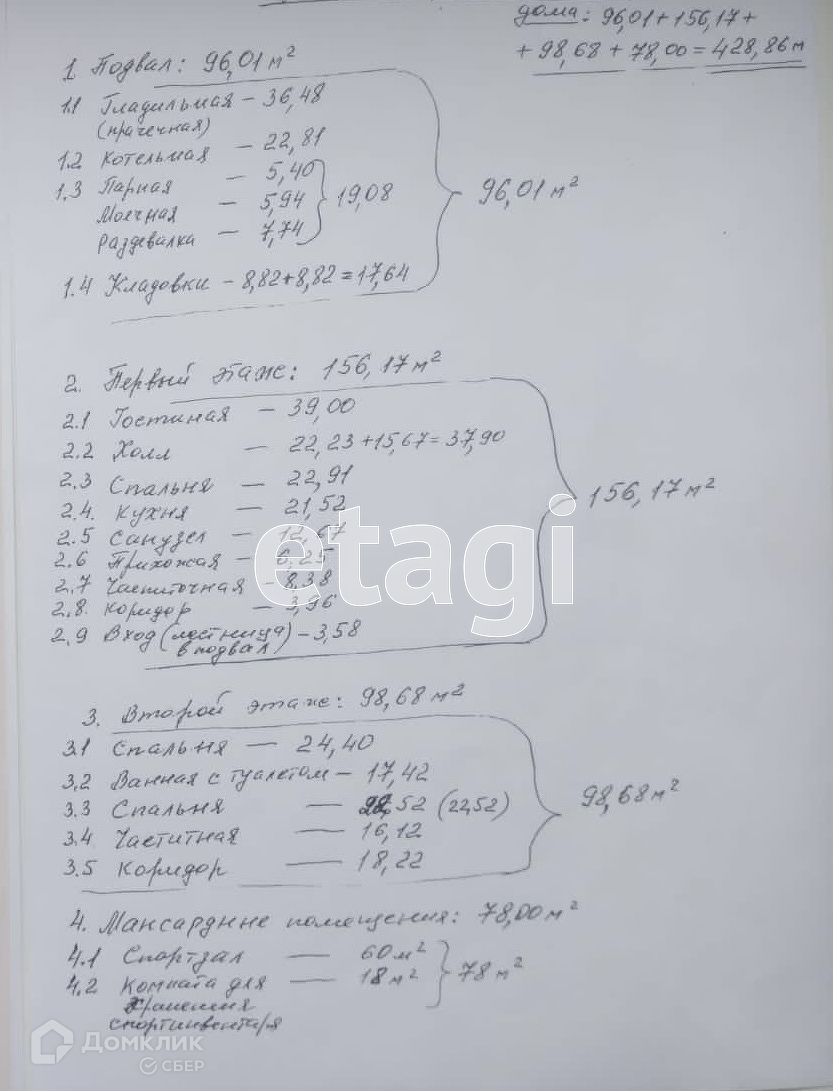 дома: 96,01+156,17+
+98,68+78,00=428,86м
1 Подвал: 96,01 м²
1.1 Гладильная - 36,48
(прачечная)
1.2 Котельная - 22,81
1.3 Парная - 5,40
Моечная - 5,94 19,08
Раздевалка - 7,74
96,01 м²
1.4 Кладовки - 8,82+8,82=17,64
2. Первый этаж: 156,17 м²
2.1 Гостиная - 39,00
2.2 Холл - 22,23+15,67=37,90
2.3 Спальня - 22,91
2.4. Кухня - 21,52
156,17 м²
2.5 Санузел - 12,67
2.6 Прихожая - 6,25
2.7 Чаепиточная - 8,38
2.8. Коридор - 3,96
2.9 Вход (лестница - 3,58
в подвал)
etagi
3. Второй этаж: 98,68 м²
3.1 Спальня - 24,40
3.2 Ванная с туалетом - 17,42
3.3 Спальня - 22,52 (22,52)
98,68 м²
3.4 Частитная - 16,12
3.5 Коридор - 18,22
4. Мансардные помещения: 78,00 м²
4.1 Спортзал - 60 м²
4.2 Комната для - 18 м² 78 м²
хранения
спортинвентаря
Домклик
СБЕР